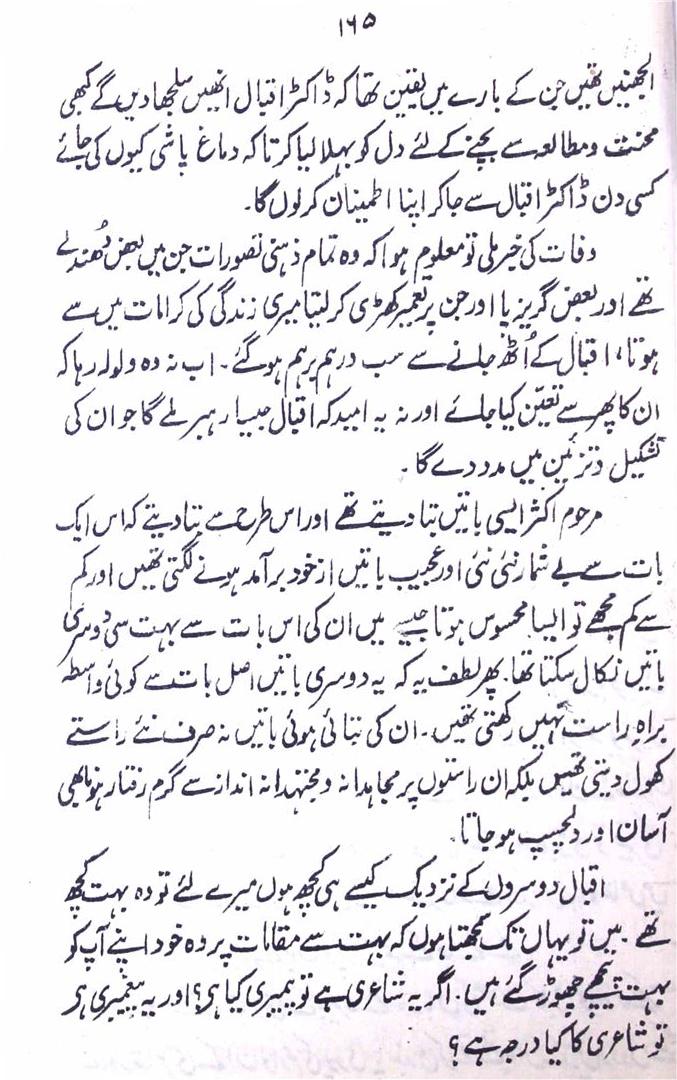 ۱۶۵
الجھنیں تھیں جن کے بارے میں یقین تھا کہ ڈاکٹر اقبال انھیں سلجھا دیں گے کبھی
محنت و مطالعہ سے بچنے کے لئے دل کو بہلا لیا کرتا کہ دماغ پاشی کیوں کی جائے
کسی دن ڈاکٹر اقبال سے جا کر اپنا اطمینان کر لوں گا۔
وفات کی خبر ملی تو معلوم ہوا کہ وہ تمام ذہنی تصورات جن میں بعض دُھندلے
تھے اور بعض گریز پا اور جن پر تعمیر کھڑی کر لینا میری زندگی کی کرامات میں سے
ہوتا، اقبال کے اُٹھ جانے سے سب درہم برہم ہو گئے۔ اب نہ وہ ولولہ رہا کہ
ان کا پھر سے تعیّن کیا جائے اور نہ یہ امید کہ اقبال جیسا رہبر ملے گا جو ان کی
تشکیل و تزئین میں مدد دے گا۔
مرحوم اکثر ایسی باتیں بتا دیتے تھے اور اس طرح سے بتا دیتے کہ اس ایک
بات سے بے شمار نئی نئی اور عجیب باتیں از خود برآمد ہونے لگتی تھیں اور کم
سے کم مجھے تو ایسا محسوس ہوتا جیسے میں ان کی اس بات سے بہت سی دوسری
باتیں نکال سکتا تھا۔ پھر لطف یہ کہ یہ دوسری باتیں اصل بات سے کوئی واسطہ
براہِ راست نہیں رکھتی تھیں۔ ان کی بتائی ہوئی باتیں نہ صرف نئے راستے
کھول دیتی تھیں بلکہ ان راستوں پر مجاہدانہ و مجتہدانہ انداز سے گرم رفتار ہونا بھی
آسان اور دلچسپ ہو جاتا۔
اقبال دوسروں کے نزدیک کیسے ہی کچھ ہوں میرے لئے تو وہ بہت کچھ
تھے۔ میں تو یہاں تک سمجھتا ہوں کہ بہت سے مقامات پر وہ خود اپنے آپ کو
بہت پیچھے چھوڑ گئے ہیں۔ اگر یہ شاعری ہے تو پیمبری کیا ہی؟ اور یہ پیغمبری ہی
تو شاعری کا کیا درجہ ہے؟